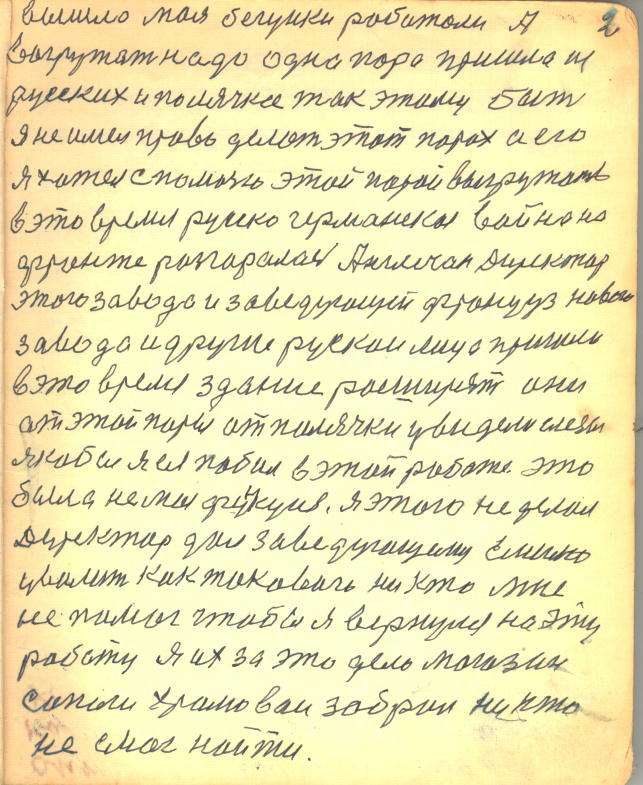 вышло моя бегунки работали Я 2
выгружат надо одна пора пришла из
русских и полячке так этому быт
я не имел правь делат этот порох а его
я хотел с помочю этой порой выгружать
в это время русско германская война на
фронте розгаралас Англечан Директор
этого завода и заведующей француз нового
завода и другие руской лица пришли
в это время здание росширят они
от этой поры от полячки увидели слезы
якобы я ея побил в этой работе это
была не моя функция. я этого не делал
Директор дал заведующему
уволит как токовагь ни кто мне
не помог чтобы я вернулся на эту
работу я их за это дело могозин
сапоги хромоваи забрал ни кто
не смог найти.